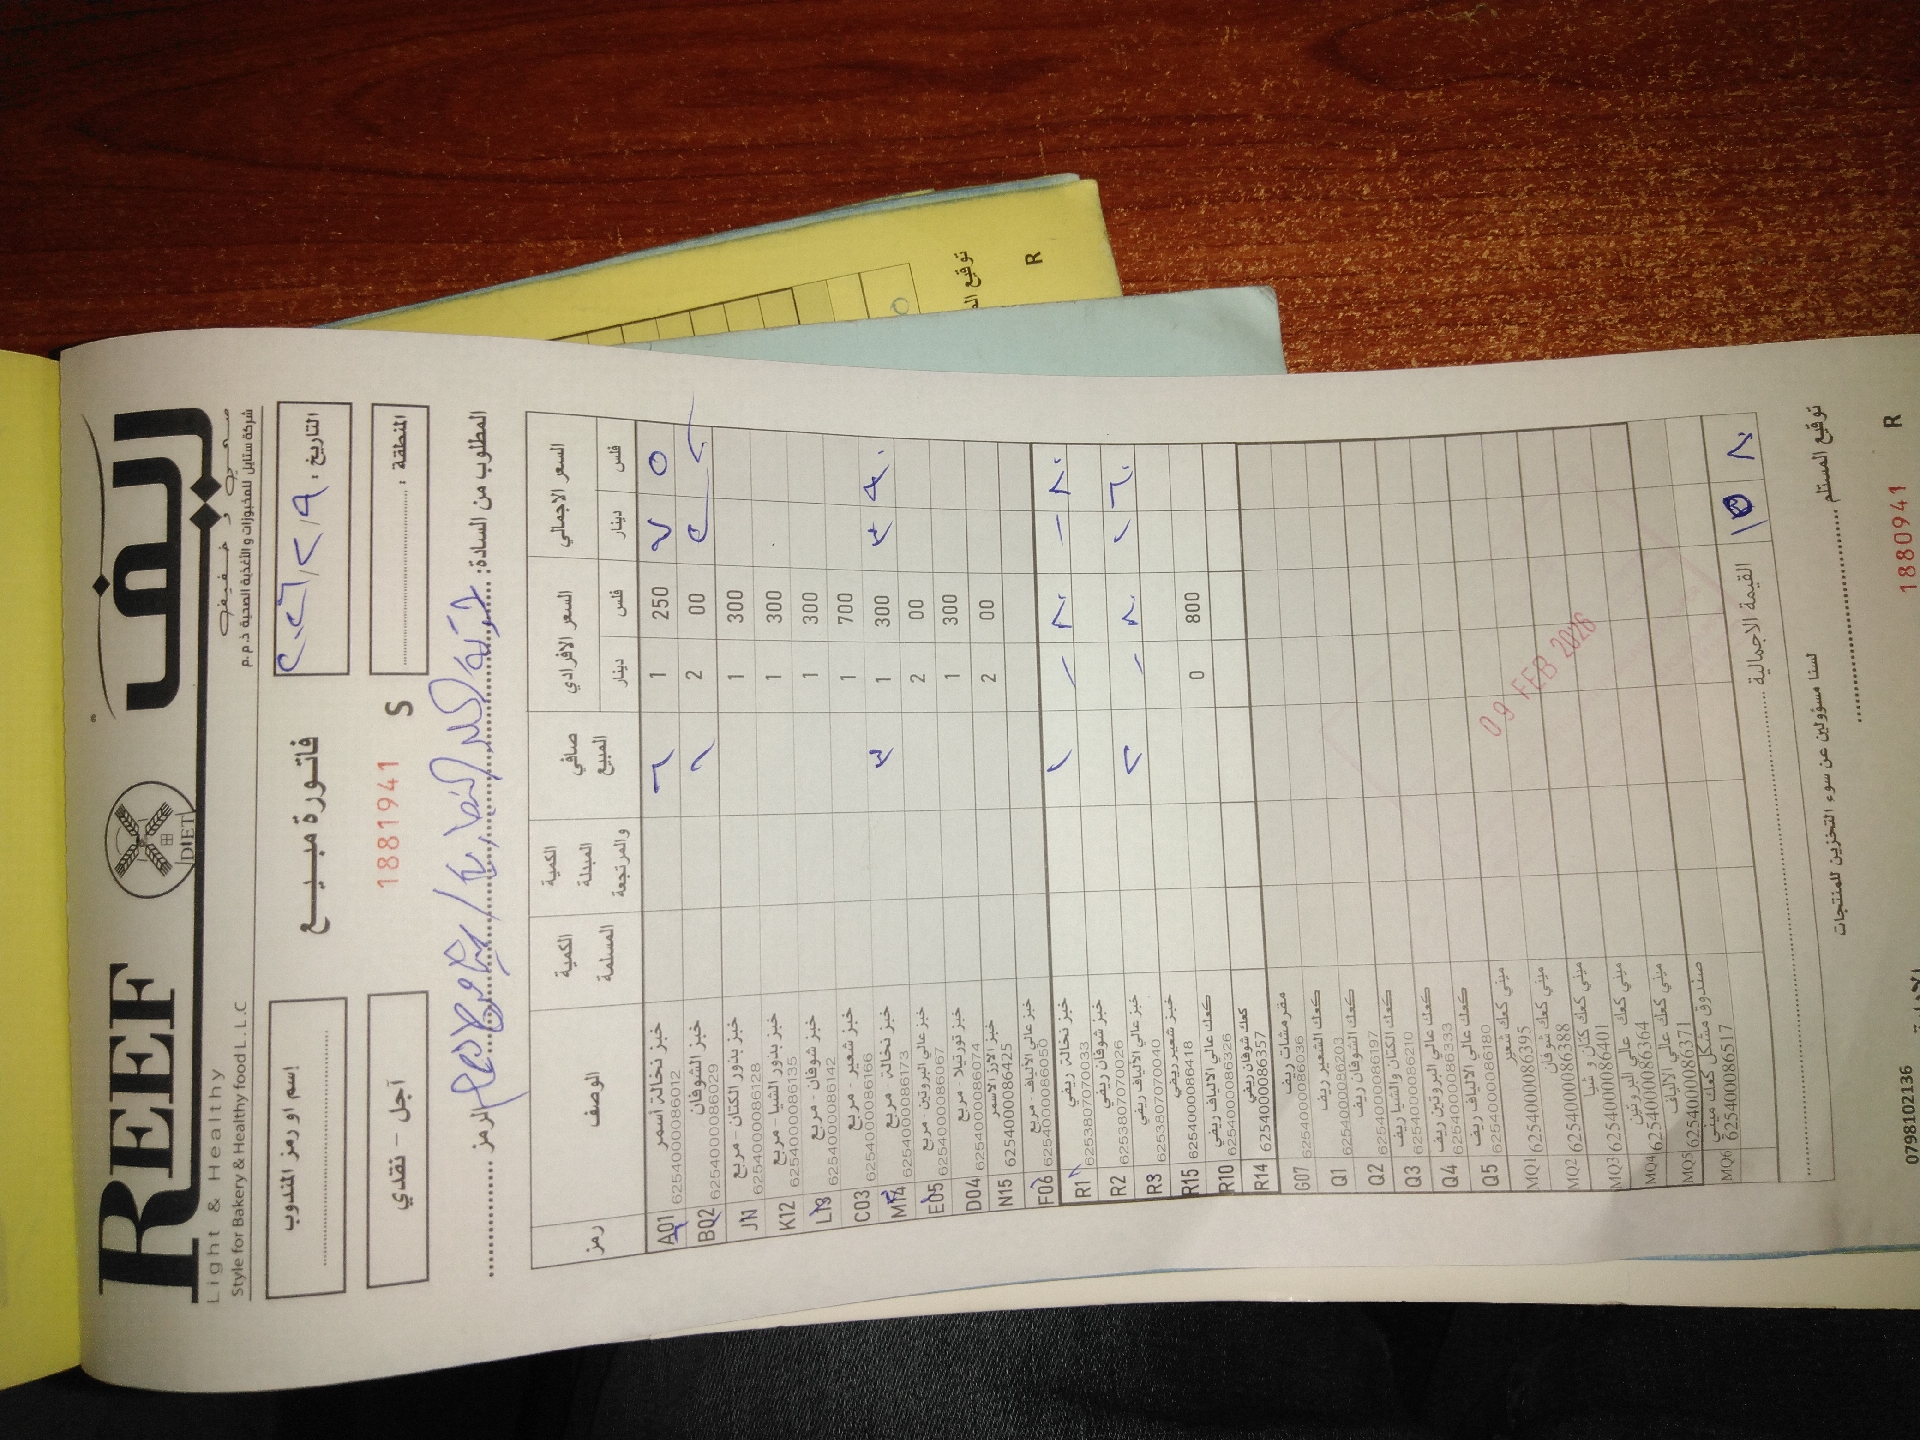 REEF
ريف
DIET
Light & Healthy
صحي و خفيف
Style for Bakery & Healthy food L.L.C
شركة ستايل للمخبوزات والأغذية الصحية ذ.م.م
إسم او رمز المندوب
فاتورة مبيع
التاريخ : ٢٠٢٦/٢/٩
آجل - نقدي
1881941 S
المنطقة :
المطلوب من السادة:
الرمز
رمز الوصف الكمية المسلمة الكمية المبدلة والمرتجعة صافي المبيع السعر الافرادي السعر الاجمالي
دينار فلس دينار فلس
A01 خبز نخالة أسمر 6254000086012 ٦ 1 250 ٧ ٥
BQ2 خبز الشوفان 6254000086029 ١ 2 00 ٢
J11 خبز بذور الكتان - مربع 6254000086128 1 300
K12 خبز بذور الشيا - مربع 6254000086135 1 300
L13 خبز شوفان - مربع 6254000086142 1 300
C03 خبز شعير - مربع 6254000086166 1 700
M14 خبز نخالة مربع 6254000086173 ٣ 1 300 ٣ ٩٠
E05 خبز عالي البروتين مربع 6254000086067 2 00
D04 خبز تورتيلا مربع 6254000086074 1 300
N15 خبز الارز الاسمر 6254000086425 2 00
F06 خبز عالي الالياف - مربع 6254000086050
R1 خبز نخالة ريفي 6253807070033 ١ ١ ٨٠ ١ ٨٠
R2 خبز شوفان ريفي 6253807070026 ٢ ١ ٨٠ ١ ٦٠
R3 خبز عالي الالياف ريفي 6253807070040
R15 خبز شعير ريفي 6254000086418 0 800
R10 كعك عالي الالياف ريفي 6254000086326
R14 كعك شوفان ريفي 6254000086357
G07 مقرمشات ريف 6254000086036
Q1 كعك الشعير ريف 6254000086203
Q2 كعك الشوفان ريف 6254000086197
Q3 كعك الكتان والشيا ريف 6254000086210
Q4 كعك عالي البروتين ريف 6254000086333
Q5 كعك عالي الالياف ريف 6254000086180
MQ1 ميني كعك شعير 6254000086395
MQ2 ميني كعك شوفان 6254000086388
MQ3 ميني كعك كتان و شيا 6254000086401
MQ4 ميني كعك عالي البروتين 6254000086364
MQ5 ميني كعك عالي الالياف 6254000086371
MQ6 صندوق مشكل كعك ميني 6254000086517
09 FEB 2026
القيمة الاجمالية ١٥ ٨
لسنا مسؤولين عن سوء التخزين للمنتجات
توقيع المستلم
0798102136
1880941 R
توقيع
R